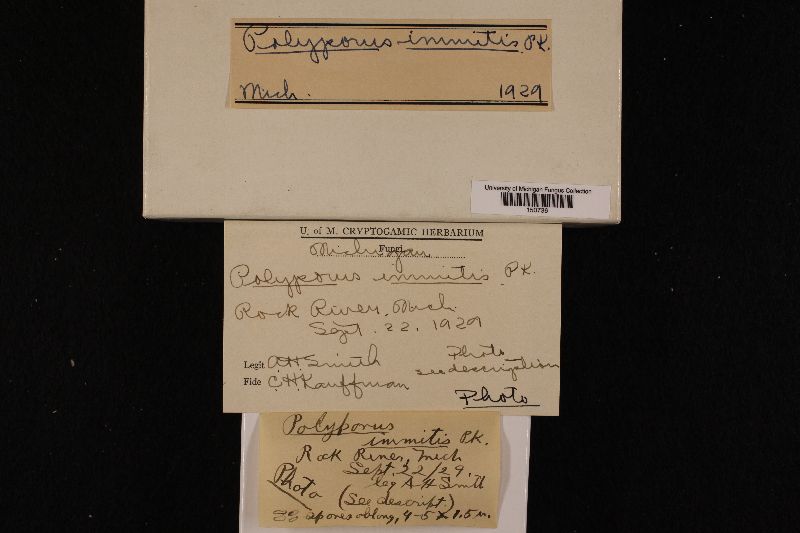 Polyporus immitis PK.
Mich. 1929
University of Michigan Fungus Collection
U. of M. CRYPTOGAMIC HERBARIUM
Fungi
Michigan
Polyporus immitis PK.
Rock River, Mich.
Sept. 22, 1929
Legit A.H. Smith Photo
see description
Fide C.H. Kauffman
Photo
Polyporus
immitis PK.
Rock River, Mich
Sept. 22/29.
Photo leg A H Smith
(See descript.)
spores oblong, 4-5 x 1.5 u.